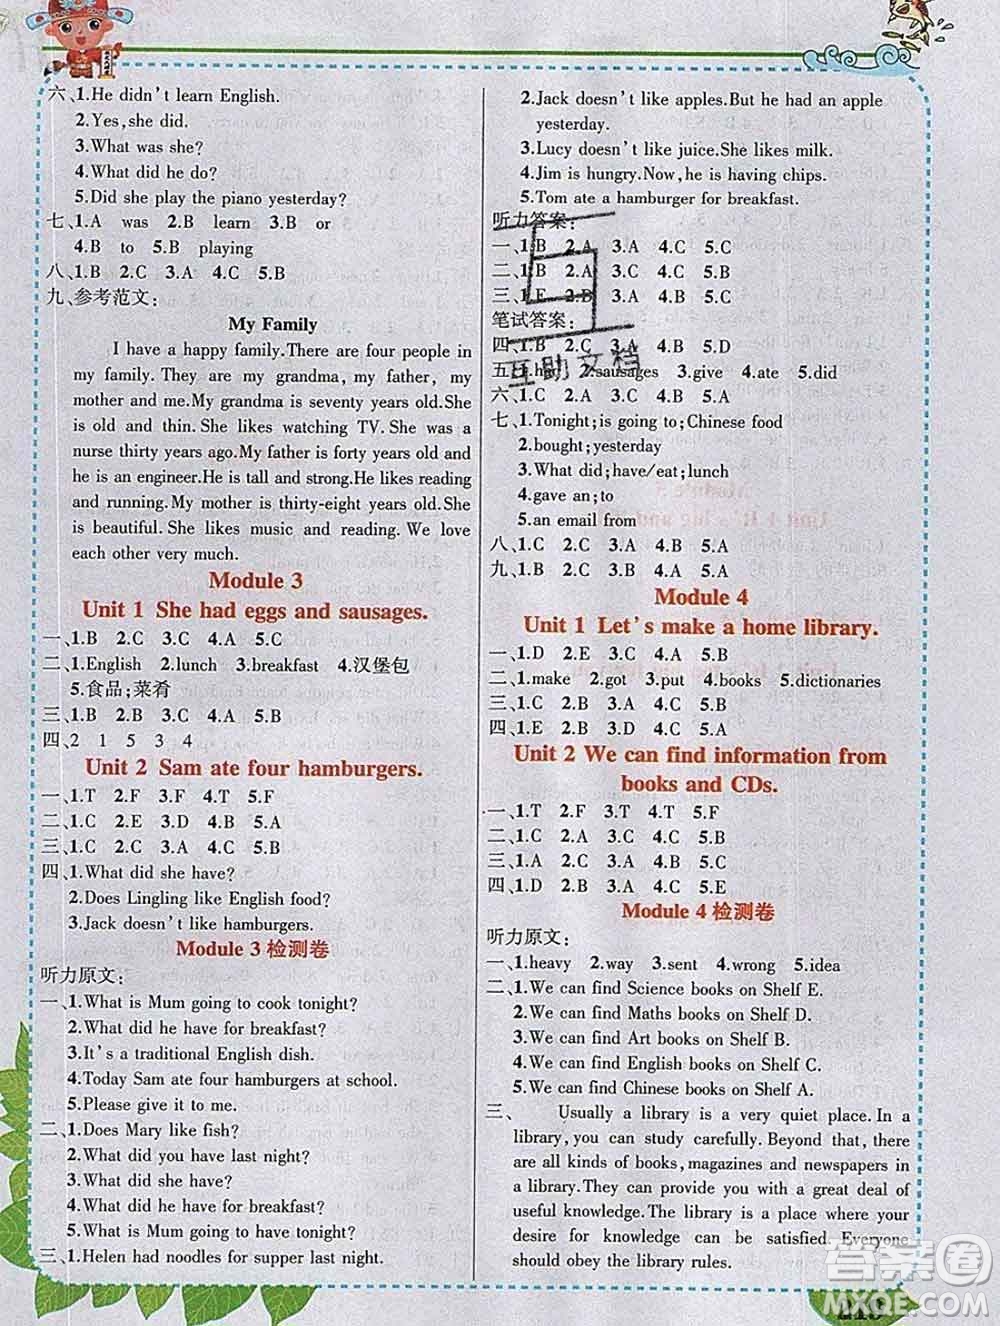 六、1.He didn't learn English.
2.Yes,she did.
3.What was she?
4.What did he do?
5.Did she play the piano yesterday?
七、1.A was 2.B learn 3.B or
4.B to 5.B playing
八、1.B 2.C 3.A 4.C 5.B
九、参考范文:
My Family
I have a happy family.There are four people in
my family. They are my grandma, my father, my
mother and me.My grandma is seventy years old.She
is old and thin. She likes watching TV. She was a
nurse thirty years ago.My father is forty years old and
he is an engineer.He is tall and strong.He likes reading
and running. My mother is thirty-eight years old. She
is beautiful. She likes music and reading. We love
each other very much.
Module 3
Unit 1 She had eggs and sausages.
一、1.B 2.C 3.C 4.A 5.C
二、1.English 2.lunch 3.breakfast 4.汉堡包
5.食品;菜肴
三、1.B 2.B 3.A 4.C 5.B
四、2 1 5 3 4
Unit 2 Sam ate four hamburgers.
一、1.T 2.F 3.F 4.T 5.F
二、1.C 2.E 3.D 4.B 5.A
三、1.C 2.C 3.A 4.C 5.B
四、1.What did she have?
2.Does Lingling like English food?
3.Jack doesn't like hamburgers.
Module 3 检测卷
听力原文:
一、1.What is Mum going to cook tonight?
2.What did he have for breakfast?
3.It's a traditional English dish.
4.Today Sam ate four hamburgers at school.
5.Please give it to me.
二、1.Does Mary like fish?
2.What did you have last night?
3.What did she have?
4.What did he have for breakfast?
5.What is Mum going to have tonight?
三、1.Helen had noodles for supper last night.
2.Jack doesn't like apples.But he had an apple
yesterday.
3.Lucy doesn't like juice.She likes milk.
4.Jim is hungry.Now,he is having chips.
5.Tom ate a hamburger for breakfast.
听力答案:
一、1.B 2.A 3.A 4.C 5.C
二、1.B 2.A 3.C 4.C 5.C
三、1.E 2.B 3.A 4.C 5.D
笔试答案:
四、1.B 2.C 3.A 4.B 5.D
五、1.had 2.sausages 3.give 4.ate 5.did
六、1.C 2.A 3.A 4.C 5.A
七、1.Tonight;is going to;Chinese food
2.bought;yesterday
3.What did;have/eat;lunch
4.gave an;to
5.an email from
八、1.C 2.C 3.A 4.B 5.A
九、1.B 2.C 3.A 4.B 5.A
Module 4
Unit 1 Let's make a home library.
一、1.D 2.E 3.C 4.A 5.B
二、1.make 2.got 3.put 4.books 5.dictionaries
三、1.C 2.B 3.A 4.C 5.C
四、1.E 2.B 3.D 4.C 5.A
Unit 2 We can find information from
books and CDs.
一、1.T 2.F 3.T 4.T 5.F
二、1.C 2.A 3.C 4.A 5.B
三、1.A 2.C 3.B 4.C 5.A
四、1.D 2.B 3.A 4.C 5.E
Module 4 检测卷
听力原文:
一、1.heavy 2.way 3.sent 4.wrong 5.idea
二、1.We can find Science books on Shelf E.
2.We can find Maths books on Shelf D.
3.We can find Art books on Shelf B.
4.We can find English books on Shelf C.
5.We can find Chinese books on Shelf A.
三、 Usually a library is a very quiet place.In a
library,you can study carefully.Beyond that, there
are all kinds of books,magazines and newspapers in
a library.They can provide you with a great deal of
useful knowledge.The library is a place where your
desire for knowledge can be satisfied. Everyone
should obey the library rules.
互助文档
答案圈
MXQE.COM